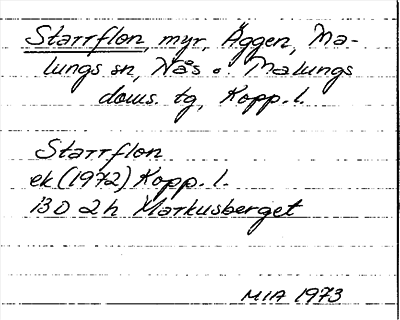 Starrflon, myr, Äggen, Ma-
lungs sn, Nås o. Malungs
doms. tg, Kopp. l.
Starrflon
ek (1972) Kopp. l.
13 D 2 h Markusberget
MIA 1973